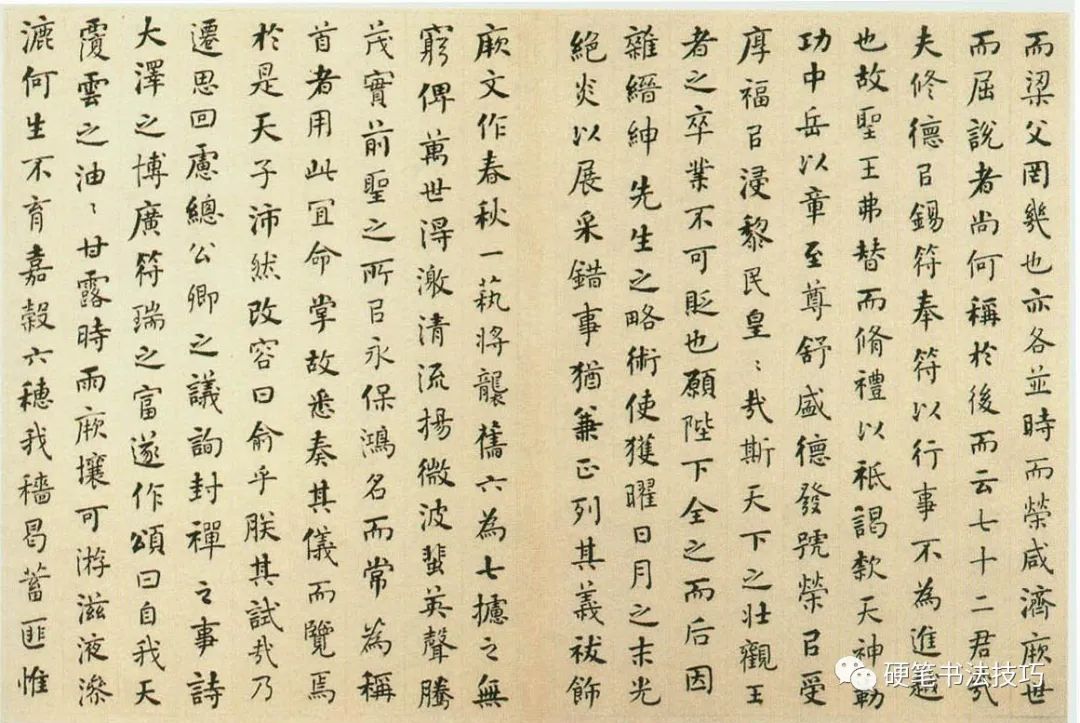 而梁父罔幾也亦各並時而榮咸濟厥世
而屈說者尚何稱於後而云七十二君㢤
夫修德㠯錫符奉符以行事不為進越
也故聖王弗替而脩禮以祗謁欵天神勒
功中岳以章至尊舒盛德發號榮㠯受
厚福㠯浸黎民皇〻㢤斯天下之壯觀王
者之卒業不可貶也願陛下全之而后因
雜縉紳先生之略術使獲曜日月之末光
絕炎以展采錯事猶兼正列其義祓飾
厥文作春秋一蓺將襲舊六為七攄之無
窮俾萬世得激清流揚微波蜚英聲騰
茂實前聖之所㠯永保鴻名而常為稱
首者用此宜命掌故悉奏其儀而覽焉
於是天子沛然改容曰俞乎朕其試㢤乃
遷思回慮總公卿之議詢封禪之事詩
大澤之博廣符瑞之富遂作頌曰自我天
覆雲之油〻甘露時雨厥壤可游滋液滲
漉何生不育嘉穀六穗我穡曷蓄匪惟
硬笔书法技巧